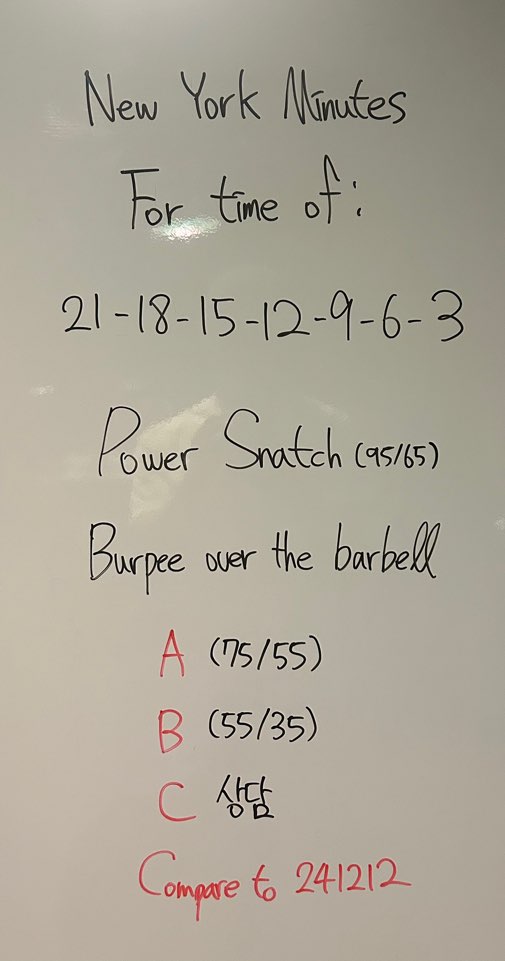 New York Minutes
For time of:
21-18-15-12-9-6-3
Power Snatch (95/65)
Burpee over the barbell
A (75/55)
B (55/35)
C 상담
Compare to 241212